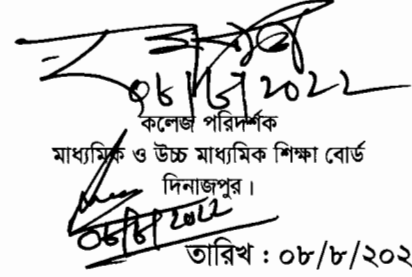 ০৮/৮/২০২২
কলেজ পরিদর্শক
মাধ্যমিক ও উচ্চ মাধ্যমিক শিক্ষা বোর্ড
দিনাজপুর।
০৮/৮/২০২২
তারিখ : ০৮/৮/২০২